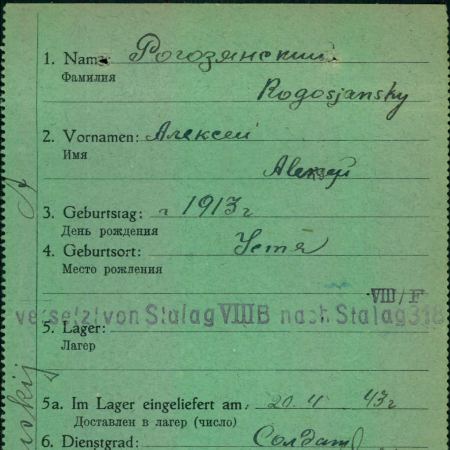 1. Name: Рогозянский
Фамилия
Rogosjansky
2. Vornamen: Алексей
Имя
Alexej
3. Geburtstag: г 1913 г
День рождения
4. Geburtsort:
Место рождения
VIII/F
versetzt von Stalag VIII B nach Stalag 318
5. Lager:
Лагерь
5a. Im Lager eingeliefert am: 20. 4 43 г
Доставлен в лагер (число)
6. Dienstgrad: Солдат